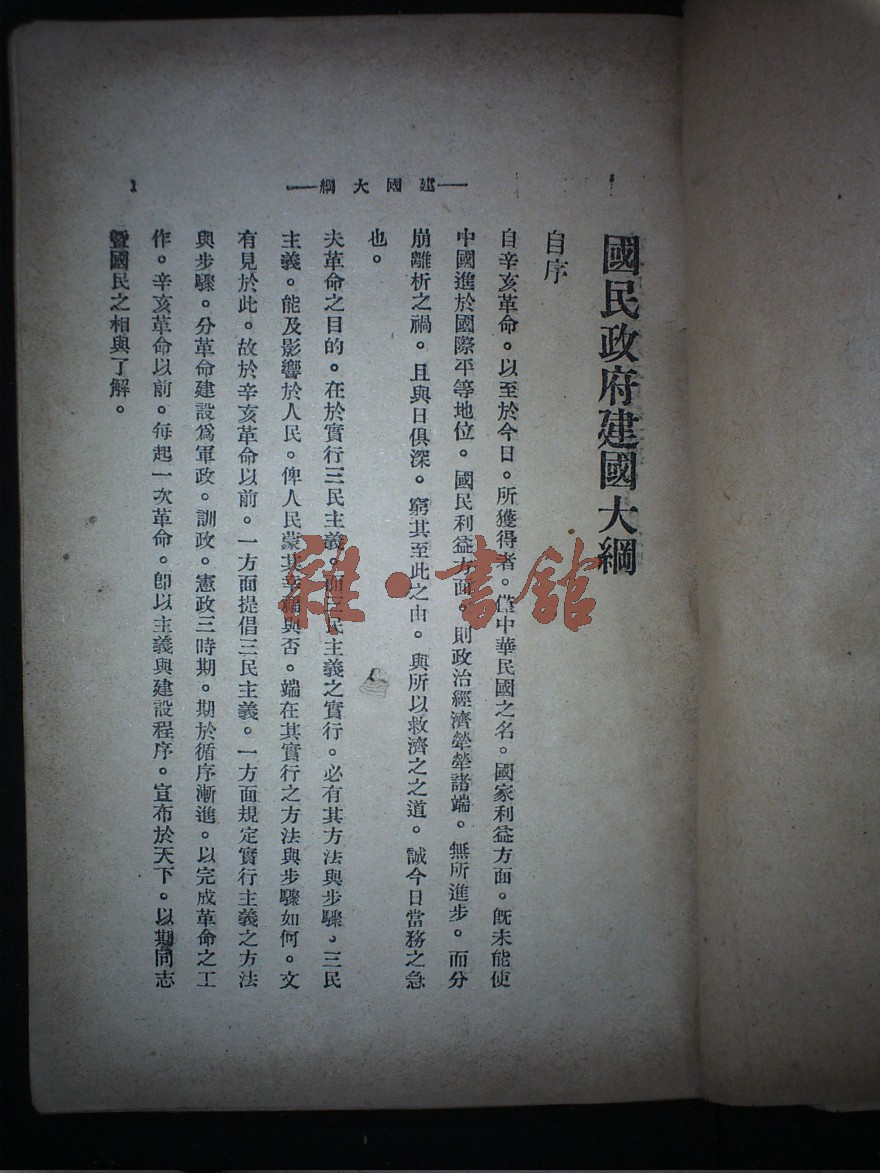 —建國大綱—
1
國民政府建國大綱
自序
自辛亥革命。以至於今日。所獲得者。僅中華民國之名。國家利益方面。旣未能使
中國進於國際平等地位。國民利益方面。則政治經濟犖犖諸端。無所進步。而分
崩離析之禍。且與日俱深。窮其至此之由。與所以救濟之之道。誠今日當務之急
也。
夫革命之目的。在於實行三民主義。而三民主義之實行。必有其方法與步驟。三民
主義。能及影響於人民。俾人民蒙其幸福與否。端在其實行之方法與步驟如何。文
有見於此。故於辛亥革命以前。一方面提倡三民主義。一方面規定實行主義之方法
與步驟。分革命建設爲軍政。訓政。憲政三時期。期於循序漸進。以完成革命之工
作。辛亥革命以前。每起一次革命。卽以主義與建設程序。宣布於天下。以期同志
曁國民之相與了解。
雜·書館